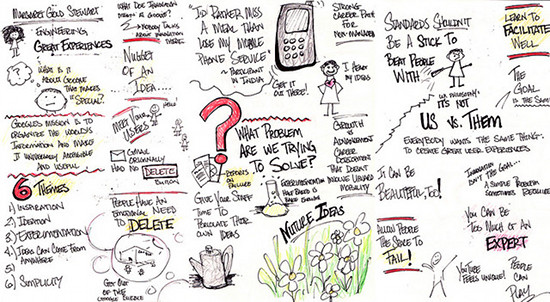 MARGARET GOLD STEWART
ENGINEERING
GREAT EXPERIENCES
WHAT IS IT
ABOUT GOOGLE
THAT MAKES
IT SPECIAL?
GOOGLE'S MISSION IS TO
ORGANIZE THE WORLD'S
INFORMATION AND MAKE
IT UNIVERSALLY ACCESSIBLE
AND USEFUL
6 THEMES
1) INSPIRATION
2) IDEATION
3) EXPERIMENTATION
4) IDEAS CAN COME FROM
ANYWHERE
5)
6) SIMPLICITY
WHAT DOES INNOVATION
MEAN @ GOOGLE?
NOBODY TALKS
ABOUT INNOVATION
THERE
NUGGET
OF AN
IDEA...
MEET YOUR
USERS
HELLO
GMAIL
ORIGINALLY
HAD NO DELETE
BUTTON
PEOPLE HAVE AN
EMOTIONAL NEED
TO
DELETE
GET OUT
OF THE
GOOGLE BUBBLE
"I'D RATHER MISS
A MEAL THAN
LOSE MY MOBILE
PHONE SERVICE"
~ PARTICIPANT
IN INDIA
GET IT
OUT THERE!
?
WHAT PROBLEM
ARE WE TRYING
TO SOLVE?
REPORTS
ON
FAILURES
GIVE YOUR STAFF
TIME TO
PERCOLATE THEIR
OWN IDEAS
EXPERIMENTATION
NURTURE IDEAS
STRONG
CAREER PATH
FOR
NON-MANAGERS
I HEART
BIG IDEAS
GROWTH &
ADVANCEMENT
CAREER
DEVELOPMENT
THAT DOESN'T
INVOLVE UPWARD
MOBILITY
ALLOW PEOPLE
THE SPACE TO
FAIL!
STANDARDS SHOULDN'T
BE A STICK TO
BEAT PEOPLE
WITH
UX PHILOSOPHY:
IT'S NOT
US VS. THEM
EVERYBODY WANTS THE SAME THING-
TO CREATE GREAT USER EXPERIENCES
IT CAN BE
BEAUTIFUL TOO!
INNOVATION
ISN'T THE GOAL...
A SIMPLE PROBLEM
SOMETIMES
YOU CAN BE
TOO MUCH OF AN
EXPERT
YOUTUBE
FEELS UNIQUE!
PEOPLE
CAN
PLAY
LEARN TO
FACILITATE
WELL
THE
GOAL
IS THE SAME